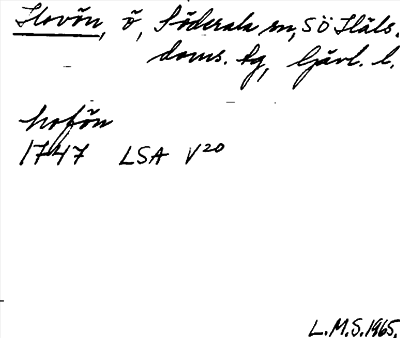 Hovön, ö, Söderala sn, SÖ Häls.
doms. tg, Gävl. l.
hofön
1747 LSA V20
L.M.S. 1965.